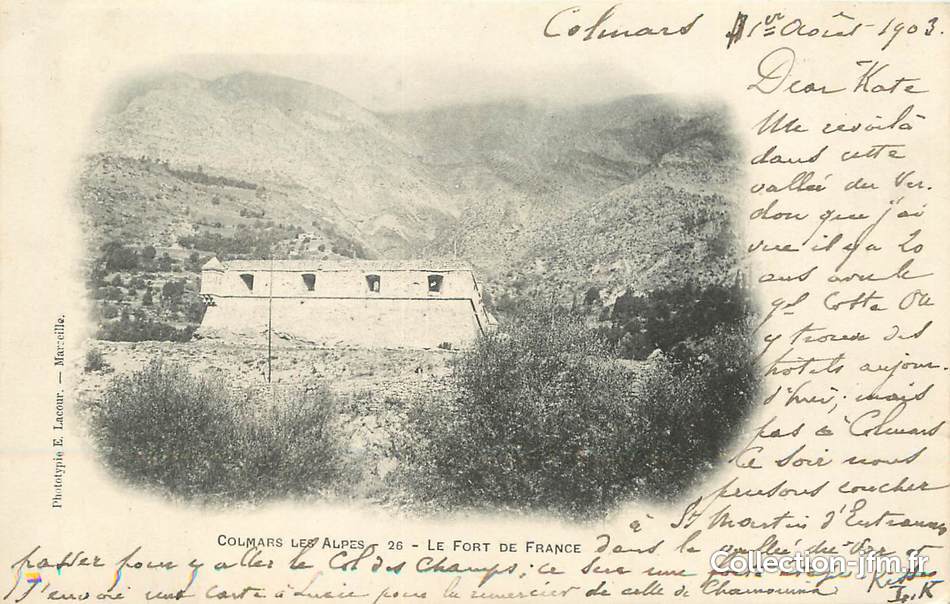 Colmars 1er Août 1903.
Dear Kate
Me revoilà
dans cette
vallée du Ver-
don que j'ai
vue il y a 20
ans avec le
gl Cotta On
y trouve des
hotels aujour-
d'hui; mais
pas à Colmars
Ce soir nous
pensons coucher
à St Martin d'Entraunes
dans la vallée du Var et
passer pour y aller le Col des Champs; ce sera une
J'envoie une carte à Lucie pour la remercier de celle de Chamounix
Phototypie E. Lacour. — Marseille.
COLMARS LES ALPES - 26 - LE FORT DE FRANCE
Collection-jfm.fr